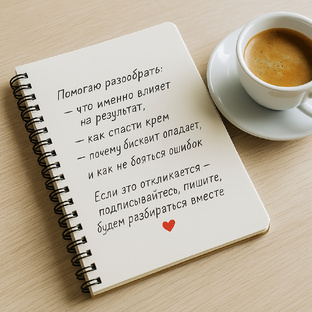 Помогаю разообрать:
— что именно влияет
на результат,
— как спасти крем
— почему бисквит опадает,
и как не бояться ошибок
Если это откликается —
подписывайтесь, пишите,
будем разбираться вместе